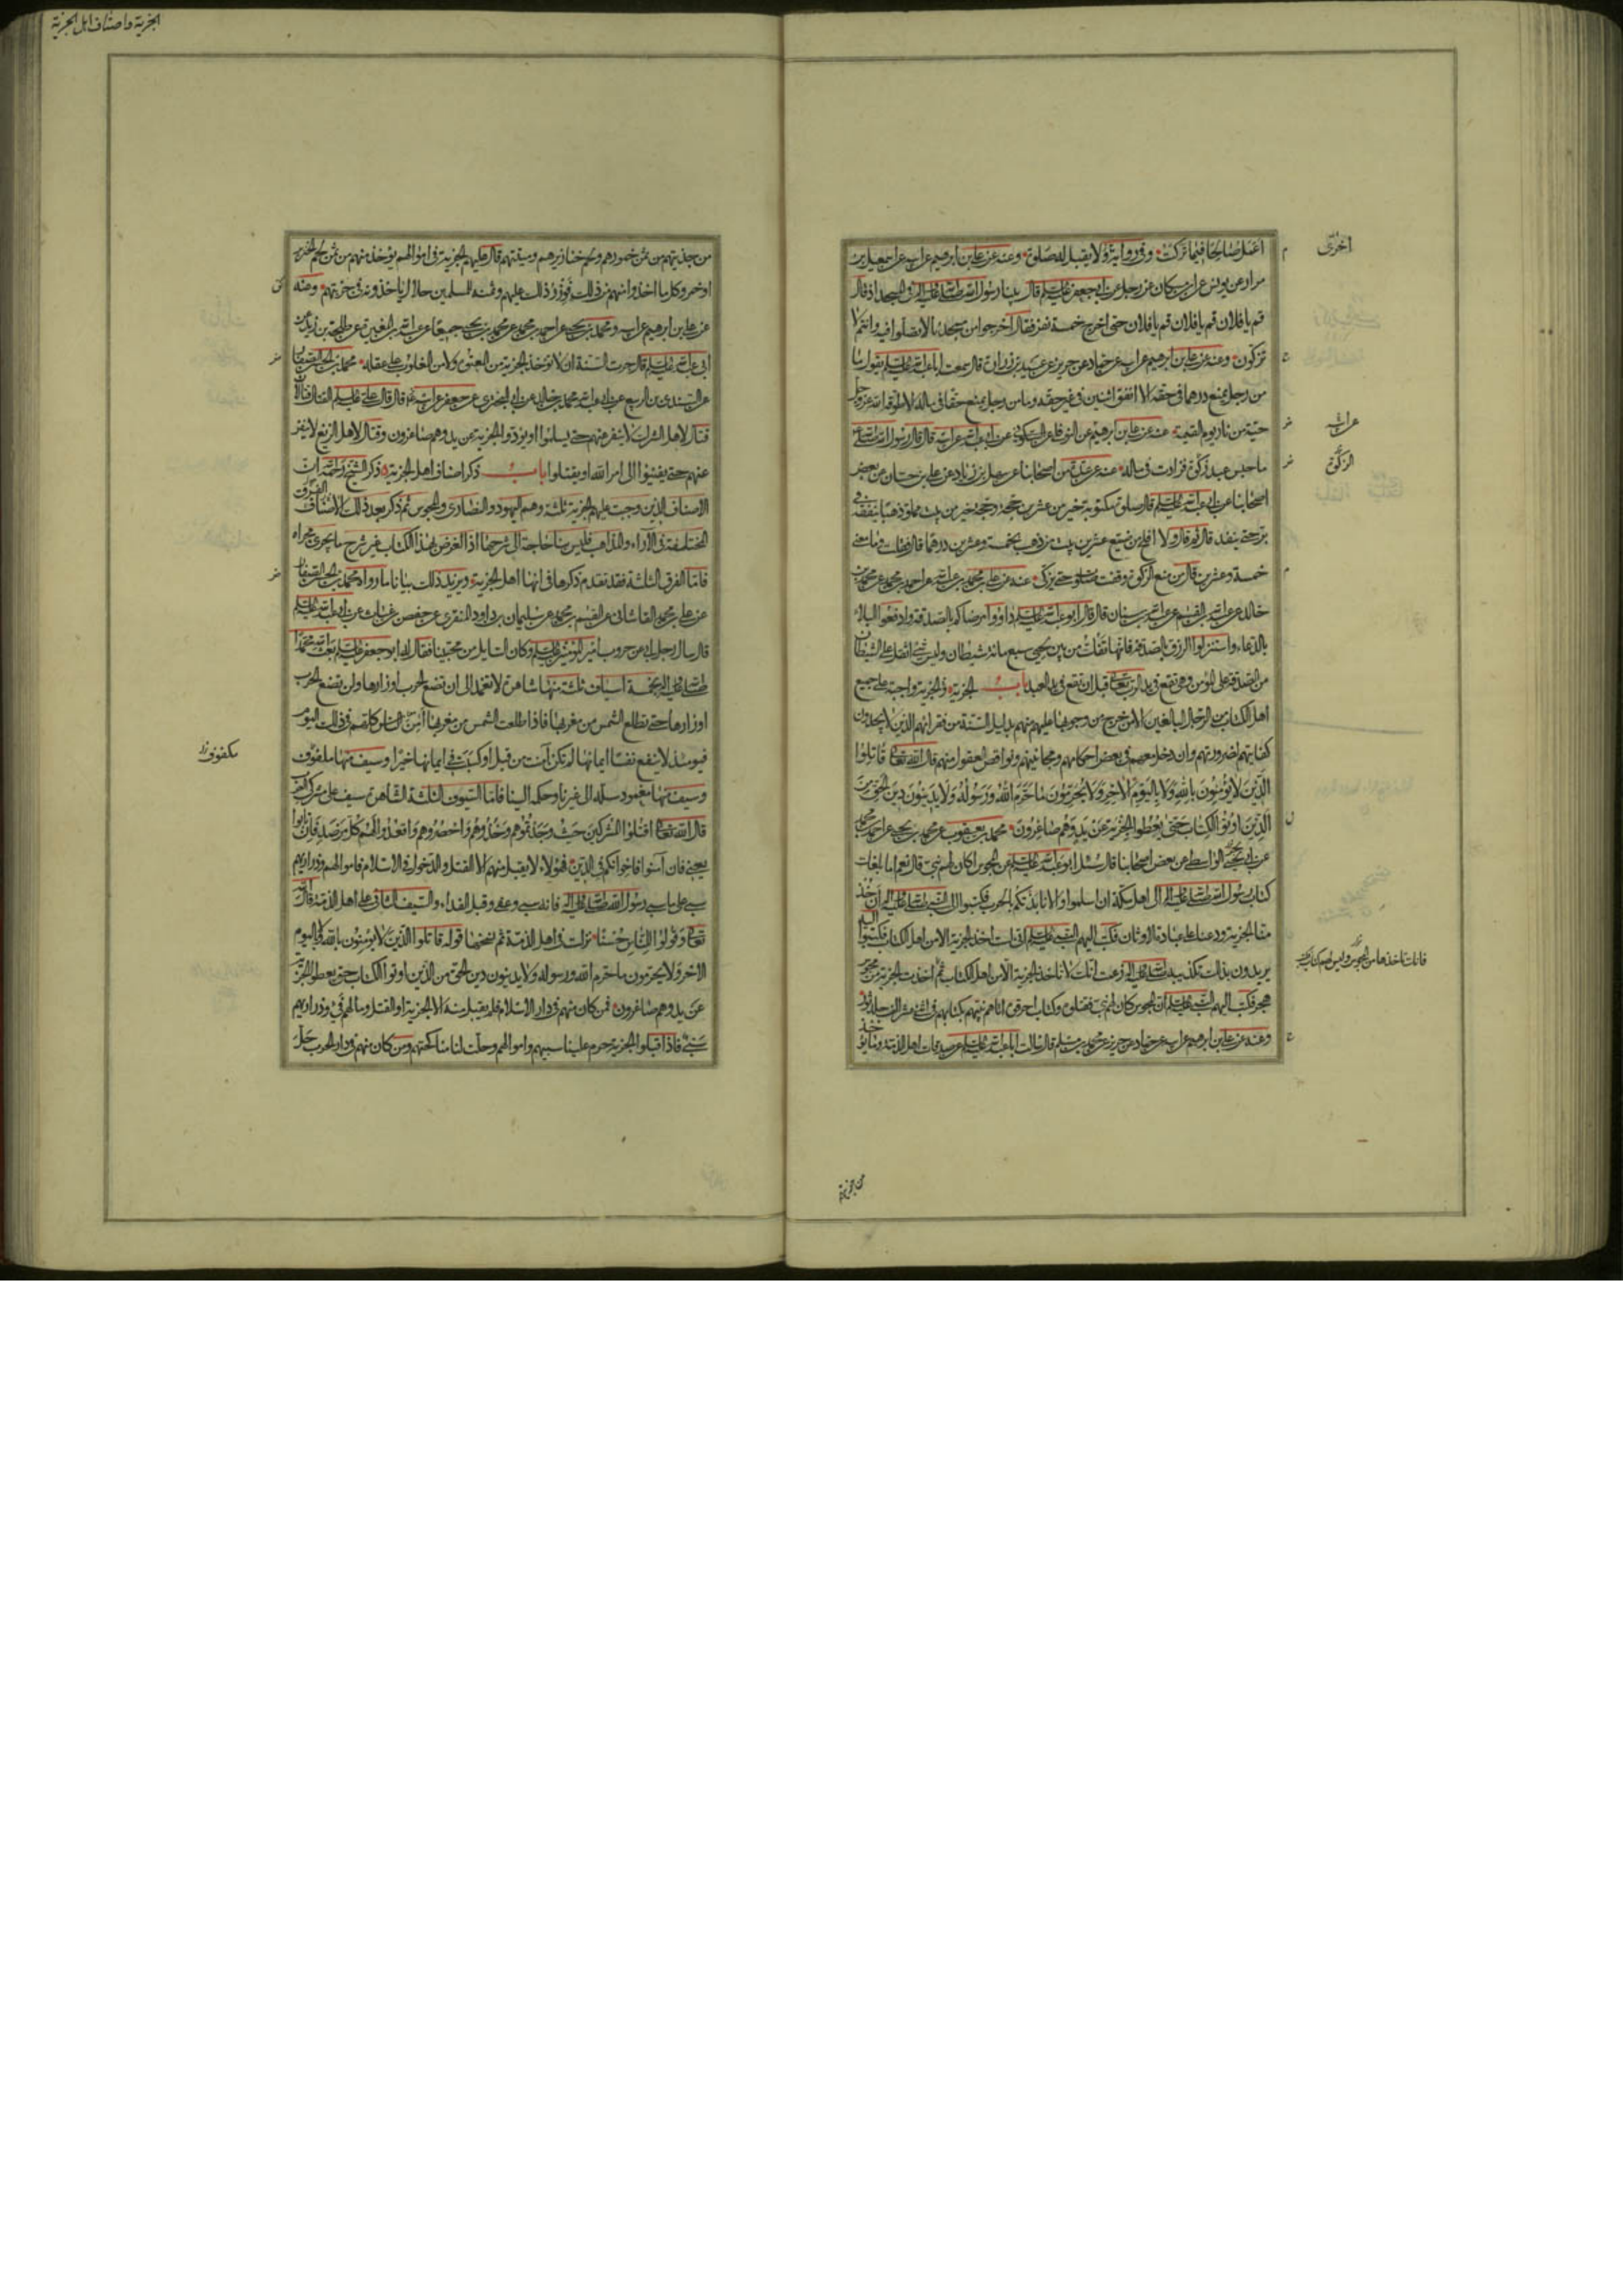 الجزية واصناف اهل الجزية
اعمل صالحا فيما تركت وفي رواية ولا يقبل له صلوة وعنه عن علي بن ابرهيم عن ابيه عن اسمعيل بن
مراد عن يونس عن ابن مسكان عن رجل عن ابي جعفر عليه السلم قال بينا رسول الله صلى الله عليه واله في المسجد اذ قال
قم يا فلان قم يا فلان قم يا فلان حتى اخرج خمسة نفر فقال اخرجوا من مسجدنا لا تصلوا فيه وانتم لا
تزكون وعنه عن علي بن ابرهيم عن ابيه عن حماد عن حريز عن عبيد بن زرارة قال سمعت ابا عبد الله عليه السلم يقول ما
من رجل يمنع درهما في حقه الا انفق اثنين في غير حقه وما من رجل يمنع حقا في ماله الا طوقه الله عز وجل
حية من نار يوم القيمة عنه عن علي بن ابرهيم عن النوفلي عن السكوني عن ابي عبد الله عن ابيه قال قال رسول الله صلى الله عليه
ما حبس عبد زكوة فزادت في ماله عنه عن عدة من اصحابنا عن سهل بن زياد عن علي بن حسان عن بعض
اصحابنا عن ابي عبد الله عليه السلم قال صلوة مكتوبة خير من عشرين حجة وحجة خير من بيت مملو ذهبا ينفقه في
بر حتى ينفد قال ثم قال ولا افلح من ضيع عشرين بيت من ذهب بخمسة وعشرين درهما قال فقلت وما معنى
خمسة وعشرين قال من منع الزكوة وقفت صلوته حتى يزكى عنه عن علي بن محمد بن عبد الله عن احمد بن محمد عن محمد بن
خالد عن عبد الله بن القسم عن عبد الله بن سنان قال قال ابو عبد الله عليه السلم داووا مرضاكم بالصدقة وادفعوا البلاء
بالدعاء واستنزلوا الرزق بالصدقة فانها تفك من بين لحيي سبع مائة شيطان وليس شيء اثقل على الشيطان
من الصدقة على المؤمن وهي تقع في يد الرب تعالى قبل ان تقع في يد العبد باب الجزية والجزية واجبة على جميع
اهل الكتاب من الرجال البالغين الا من خرج من وجوبها عليهم منهم بدليل السنة من فقرائهم الذين لا يجدون
كفايتهم لضرورتهم وان دخل معهم في بعض احكامهم ومجانينهم ونواقص العقول منهم قال الله تعالى قاتلوا
الذين لا يؤمنون بالله ولا باليوم الاخر ولا يحرمون ما حرم الله ورسوله ولا يدينون دين الحق من
الذين اوتوا الكتاب حتى يعطوا الجزية عن يد وهم صاغرون محمد بن يعقوب عن محمد بن يحيى عن احمد بن محمد
عن ابي يحيى الواسطي عن بعض اصحابنا قال سئل ابو عبد الله عليه السلم عن المجوس اكان لهم نبي قال نعم اما بلغك
كتاب رسول الله صلى الله عليه واله الى اهل مكة ان اسلموا والا نابذتكم بالحرب فكتبوا الى النبي صلى الله عليه واله ان خذ
منا الجزية ودعنا على عبادة الاوثان فكتب اليهم النبي عليه السلم اني لست اخذ الجزية الا من اهل الكتاب فكتبوا اليه
يريدون بذلك تكذيبه صلى الله عليه واله زعمت انك لا تاخذ الجزية الا من اهل الكتاب ثم اخذت الجزية من مجوس
هجر فكتب اليهم النبي عليه السلم ان المجوس كان لهم نبي فقتلوه وكتاب احرقوه اتاهم نبيهم بكتابهم في اثني عشر الف جلد ثور
وعنه عن علي بن ابرهيم عن ابيه عن حماد عن حريز عن محمد بن مسلم قال سالت ابا عبد الله عليه السلم عن صدقات اهل الذمة وما يؤخذ
اخرى
الزكوة
من جزيتهم
من جزيتهم من ثمن خمورهم ولحم خنازيرهم وميتتهم قال عليهم الجزية في اموالهم يؤخذ منهم من ثمن لحم الخنزير
او خمر وكل ما اخذوا منهم من ذلك فوزر ذلك عليهم وثمنه للمسلمين حلال ياخذونه في جزيتهم وعنه
عن علي بن ابرهيم عن ابيه ومحمد بن يحيى عن احمد بن محمد عن محمد بن يحيى جميعا عن عبد الله بن المغيرة عن طلحة بن زيد عن
ابي عبد الله عليه السلم قال جرت السنة ان لا تؤخذ الجزية من المعتوه ولا من المغلوب على عقله محمد بن الحسن الصفار
عن السندي بن الربيع عن ابي عبد الله محمد بن خالد عن ابي البختري عن جعفر عن ابيه قال قال علي عليه السلم القتال قتالان
قتال لاهل الشرك لا ينفر عنهم حتى يسلموا او يؤدوا الجزية عن يد وهم صاغرون وقتال لاهل الزيغ لا ينفر
عنهم حتى يفيئوا الى امر الله او يقتلوا باب ذكر اصناف اهل الجزية ذكر الشيخ رحمه الله ان
الاصناف الذين وجبت عليهم الجزية ثلثة وهم اليهود والنصارى والمجوس ثم ذكر بعد ذلك الاصناف الفرق
المختلفة في الآراء والمذاهب فليس بنا حاجة الى شرحها اذ الغرض بهذا الكتاب غير شرح ما يجري مجراه
فاما الفرق الثلثة فقد تقدم ذكرها في انها اهل الجزية ويزيد ذلك بيانا ما رواه محمد بن الحسن الصفار
عن علي بن محمد القاشاني عن القسم بن محمد عن سليمان بن داود المنقري عن حفص بن غياث عن ابي عبد الله عليه السلم
قال سال رجل ابي عن حروب امير المؤمنين عليه السلم وكان السايل من محبينا فقال له ابو جعفر عليه السلم بعث الله محمدا
صلى الله عليه واله بخمسة اسياف ثلثة منها شاهرة لا تغمد الى ان تضع الحرب اوزارها ولن تضع الحرب
اوزارها حتى تطلع الشمس من مغربها فاذا طلعت الشمس من مغربها امن الناس كلهم في ذلك اليوم
فيومئذ لا ينفع نفسا ايمانها لم تكن آمنت من قبل او كسبت في ايمانها خيرا وسيف منها ملفوف
وسيف منها مغمود سله الى غيرنا وحكمه الينا فاما السيوف الثلثة الشاهرة سيف على مشركي العرب
قال الله تعالى اقتلوا المشركين حيث وجدتموهم وخذوهم واحصروهم واقعدوا لهم كل مرصد فان تابوا
يعني فان آمنوا فاخوانكم في الدين فهؤلاء لا يقبل منهم الا القتل والدخول في الاسلام فاموالهم وذراريهم
سبي على ما سبى رسول الله صلى الله عليه واله فانه سبى وعفى وقبل الفداء والسيف الثاني على اهل الذمة قال الله
تعالى وقولوا للناس حسنا نزلت في اهل الذمة ثم نسخها قوله قاتلوا الذين لا يؤمنون بالله ولا باليوم
الاخر ولا يحرمون ما حرم الله ورسوله ولا يدينون دين الحق من الذين اوتوا الكتاب حتى يعطوا الجزية
عن يد وهم صاغرون فمن كان منهم في دار الاسلام فلم يقبل منه الا الجزية او القتل ومالهم فيء وذراريهم
سبي فاذا قبلوا الجزية حرم علينا سبيهم واموالهم وحلت لنا مناكحتهم ومن كان منهم في دار الحرب حل
مكفوف